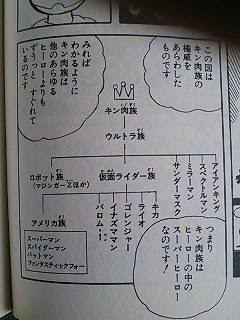 この図は
キン肉族の
権威を
あらわした
ものです
みれば
わかるように
キン肉族は
他のあらゆる
ヒーローよりも
ずうっと すぐれて
いるのです
キン肉族
ウルトラ族
アイアンキング
スペクトルマン
ミラーマン
サンダーマスク
仮面ライダー族
ロボット族
(マジンガーZほか)
キカ
ライオ
ゴレンジャー
イナズマン
バロム・1
アメリカ族
スーパーマン
スパイダーマン
バットマン
ファンタスティックフォー
つまり
キン肉族は
ヒーローの中の
スーパーヒーロー
なのです!